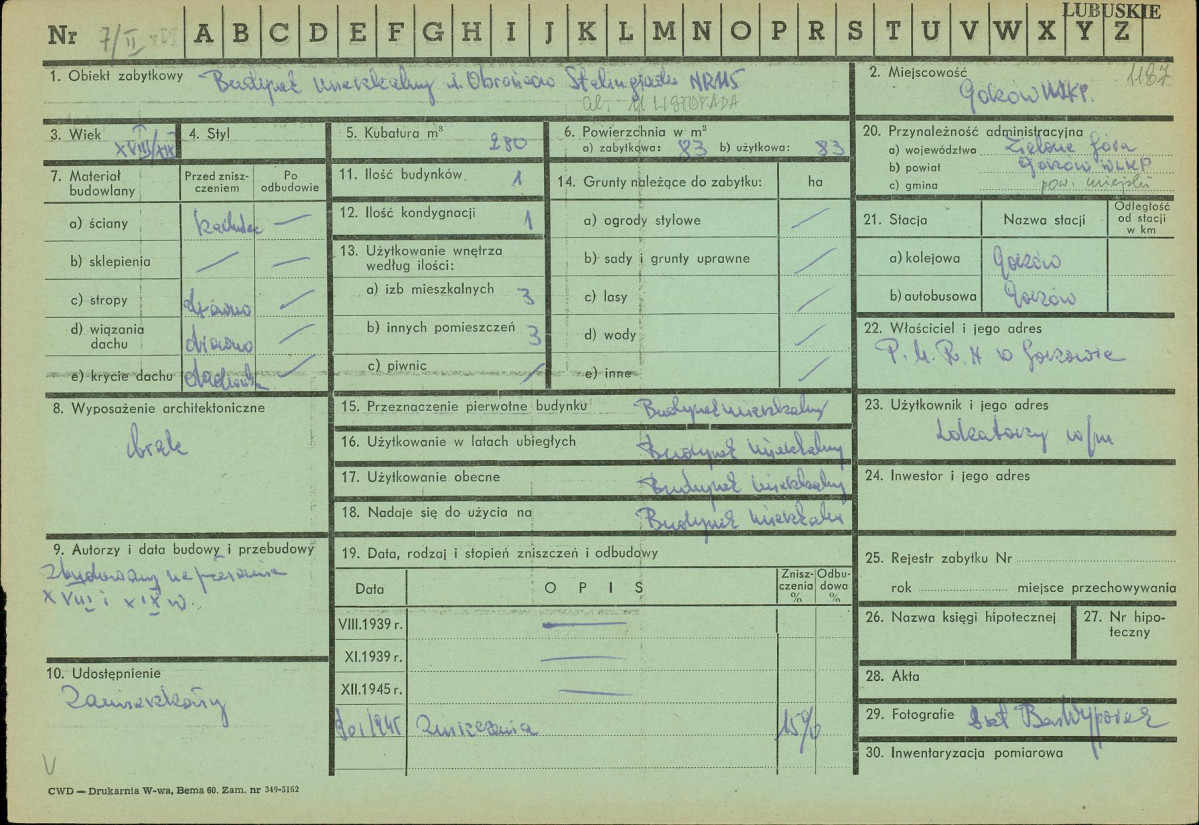 LUBUSKIE
Nr 7/II A B C D E F G H I J K L M N O P R S T U V W X Y Z
1. Obiekt zabytkowy Budynek mieszkalny Obrońców Stalingradu NR 115
AL. 11 LISTOPADA
2. Miejscowość 1187
Gorzów WLKP.
3. Wiek XVIII/XIX
4. Styl
5. Kubatura m³ 280
6. Powierzchnia w m²
a) zabytkowa: 83 b) użytkowa: 83
20. Przynależność administracyjna
a) województwo Zielona Góra
b) powiat Gorzów WLKP
c) gmina pow. miejski
7. Materiał budowlany
Przed zniszczeniem
Po odbudowie
a) ściany —
b) sklepienia — —
c) stropy drewno —
d) wiązania dachu drewno —
e) krycie dachu dachówka —
11. Ilość budynków 1
12. Ilość kondygnacji 1
13. Użytkowanie wnętrza według ilości:
a) izb mieszkalnych 3
b) innych pomieszczeń 3
c) piwnic /
14. Grunty należące do zabytku: ha
a) ogrody stylowe —
b) sady i grunty uprawne —
c) lasy —
d) wody —
e) inne —
21. Stacja Nazwa stacji Odległość od stacji w km
a) kolejowa Gorzów
b) autobusowa Gorzów
22. Właściciel i jego adres
P.M.R.N w Gorzowie
8. Wyposażenie architektoniczne
brak
15. Przeznaczenie pierwotne budynku Budynek mieszkalny
16. Użytkowanie w latach ubiegłych Budynek mieszkalny
17. Użytkowanie obecne Budynek mieszkalny
18. Nadaje się do użycia na Budynek mieszkalny
23. Użytkownik i jego adres
Lokatorzy w/m
24. Inwestor i jego adres
9. Autorzy i data budowy i przebudowy
Zbudowany na przełomie
XVIII i XIX w.
19. Data, rodzaj i stopień zniszczeń i odbudowy
Data OPIS Zniszczenia % Odbudowa %
VIII.1939 r. —
XI.1939 r. —
XII.1945 r. —
1945 Zniszczenia 15%
25. Rejestr zabytku Nr
rok miejsce przechowywania
26. Nazwa księgi hipotecznej
27. Nr hipoteczny
10. Udostępnienie
Zamieszkały
28. Akta
29. Fotografie
30. Inwentaryzacja pomiarowa
V
CWD — Drukarnia W-wa, Bema 60. Zam. nr 349-5162